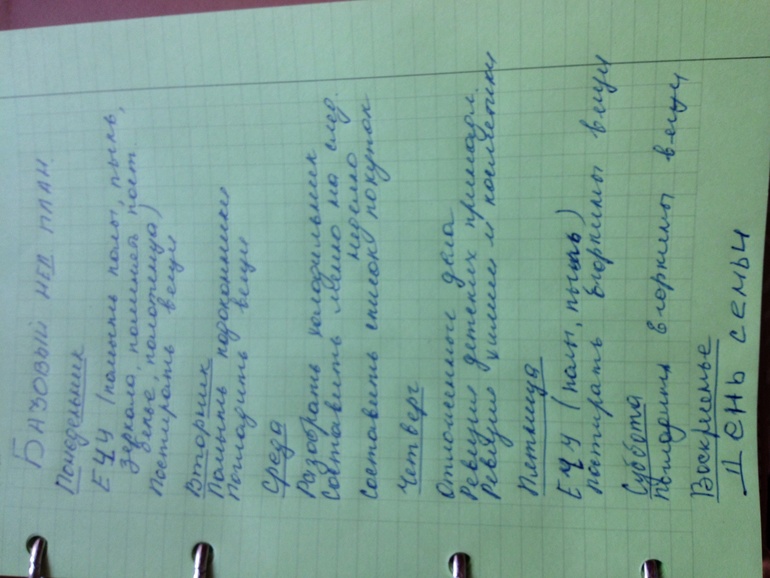 БАЗОВЫЙ НЕД ПЛАН
Понедельник
ЕЧУ (помыть полы, пыль,
зеркала, поменять пост
белье, полотенца)
Постирать вещи
Вторник
Помыть подоконники
Погладить вещи
Среда
Разобрать холодильник
Составить меню на след.
неделю
Составить список покупок
Четверг
Отложенные дела
Ревизия детских принадл.
Ревизия химии и косметики
Пятница
ЕЧУ (полы, пыль)
Постирать Егоркины вещи
Суббота
Погладить Егоркины вещи
Воскресенье
ДЕНЬ СЕМЬИ